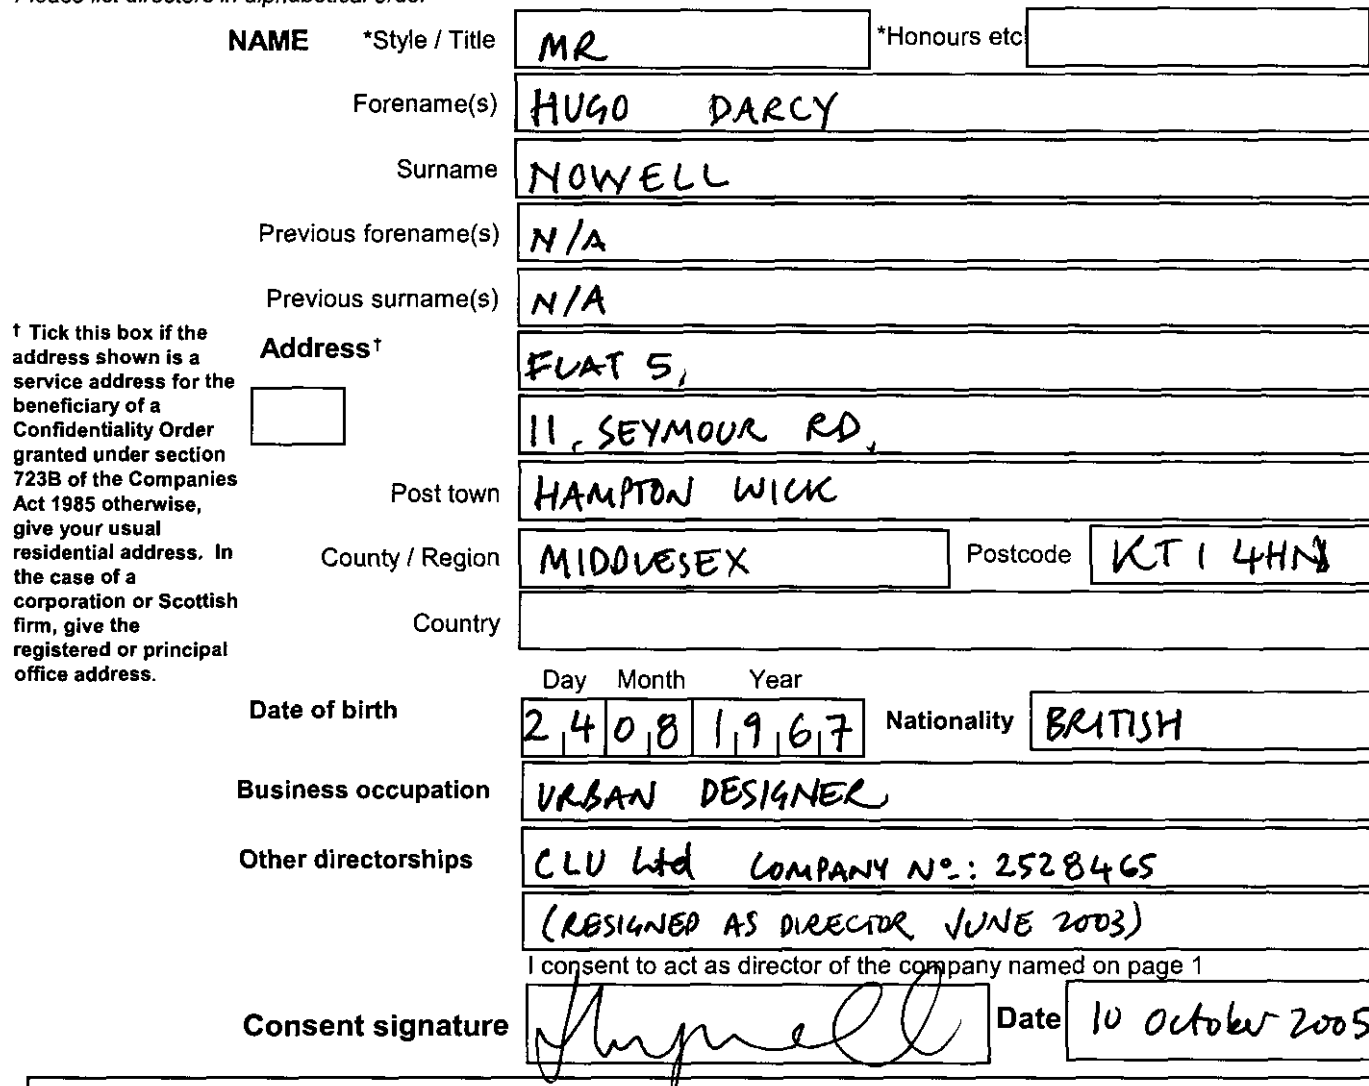 Please list directors in alphabetical order
NAME *Style / Title MR *Honours etc
Forename(s) HUGO DARCY
Surname NOWELL
Previous forename(s) N/A
Previous surname(s) N/A
† Tick this box if the
address shown is a
service address for the
beneficiary of a
Confidentiality Order
granted under section
723B of the Companies
Act 1985 otherwise,
give your usual
residential address. In
the case of a
corporation or Scottish
firm, give the
registered or principal
office address.
Address† FLAT 5,
11, SEYMOUR RD,
Post town HAMPTON WICK
County / Region MIDDLESEX Postcode KT1 4HN
Country
Day Month Year
Date of birth 24 08 1967 Nationality BRITISH
Business occupation URBAN DESIGNER
Other directorships CLU Ltd COMPANY Nº: 2528465
(RESIGNED AS DIRECTOR JUNE 2003)
I consent to act as director of the company named on page 1
Consent signature Date 10 October 2005